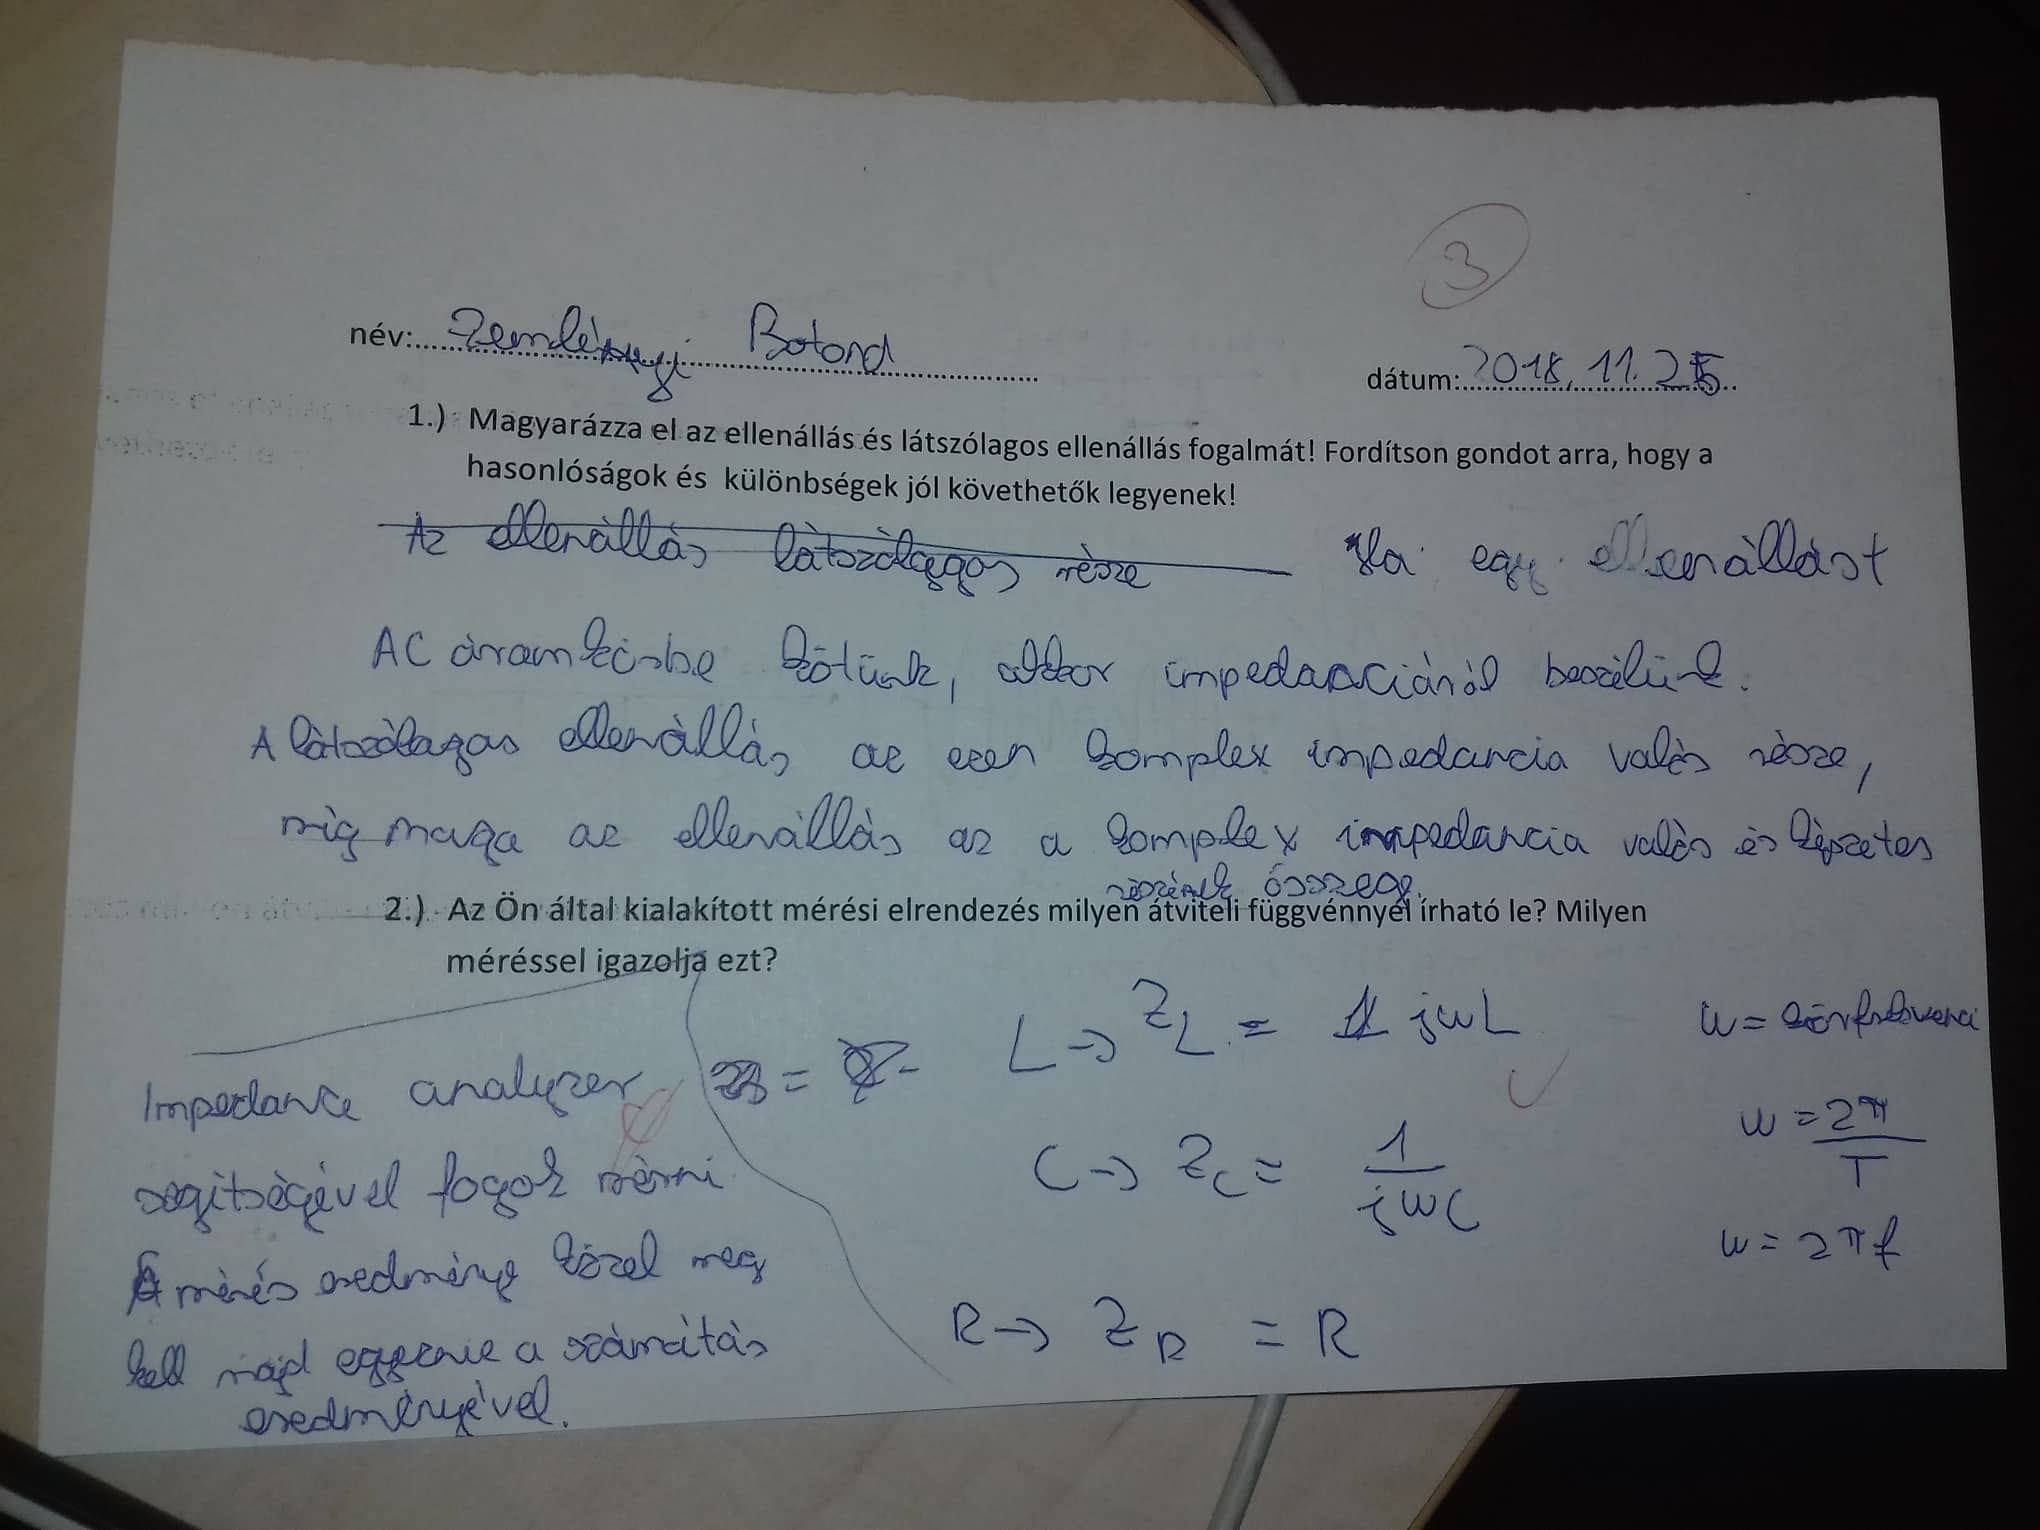 3
név: Zemlényi Botond
dátum: 2018. 11. 25
1.) Magyarázza el az ellenállás és látszólagos ellenállás fogalmát! Fordítson gondot arra, hogy a
hasonlóságok és különbségek jól követhetők legyenek!
Az ellenállás látszólagos része Ha egy ellenállást
AC áramkörbe kötünk, akkor impedanciáról beszélünk.
A látszólagos ellenállás az ezen komplex impedancia valós része,
míg maga az ellenállás az a komplex impedancia valós és képzetes
részének összege.
2.) Az Ön által kialakított mérési elrendezés milyen átviteli függvénnyel írható le? Milyen
méréssel igazolja ezt?
Impedance analyzer
segítségével fogok mérni
A mérés eredménye közel meg
kell majd egyeznie a számítás
eredményével.
L → Z_L = jωL
C → Z_C = 1/jωC
R → Z_R = R
ω = körfrekvenci
ω = 2π/T
ω = 2πf